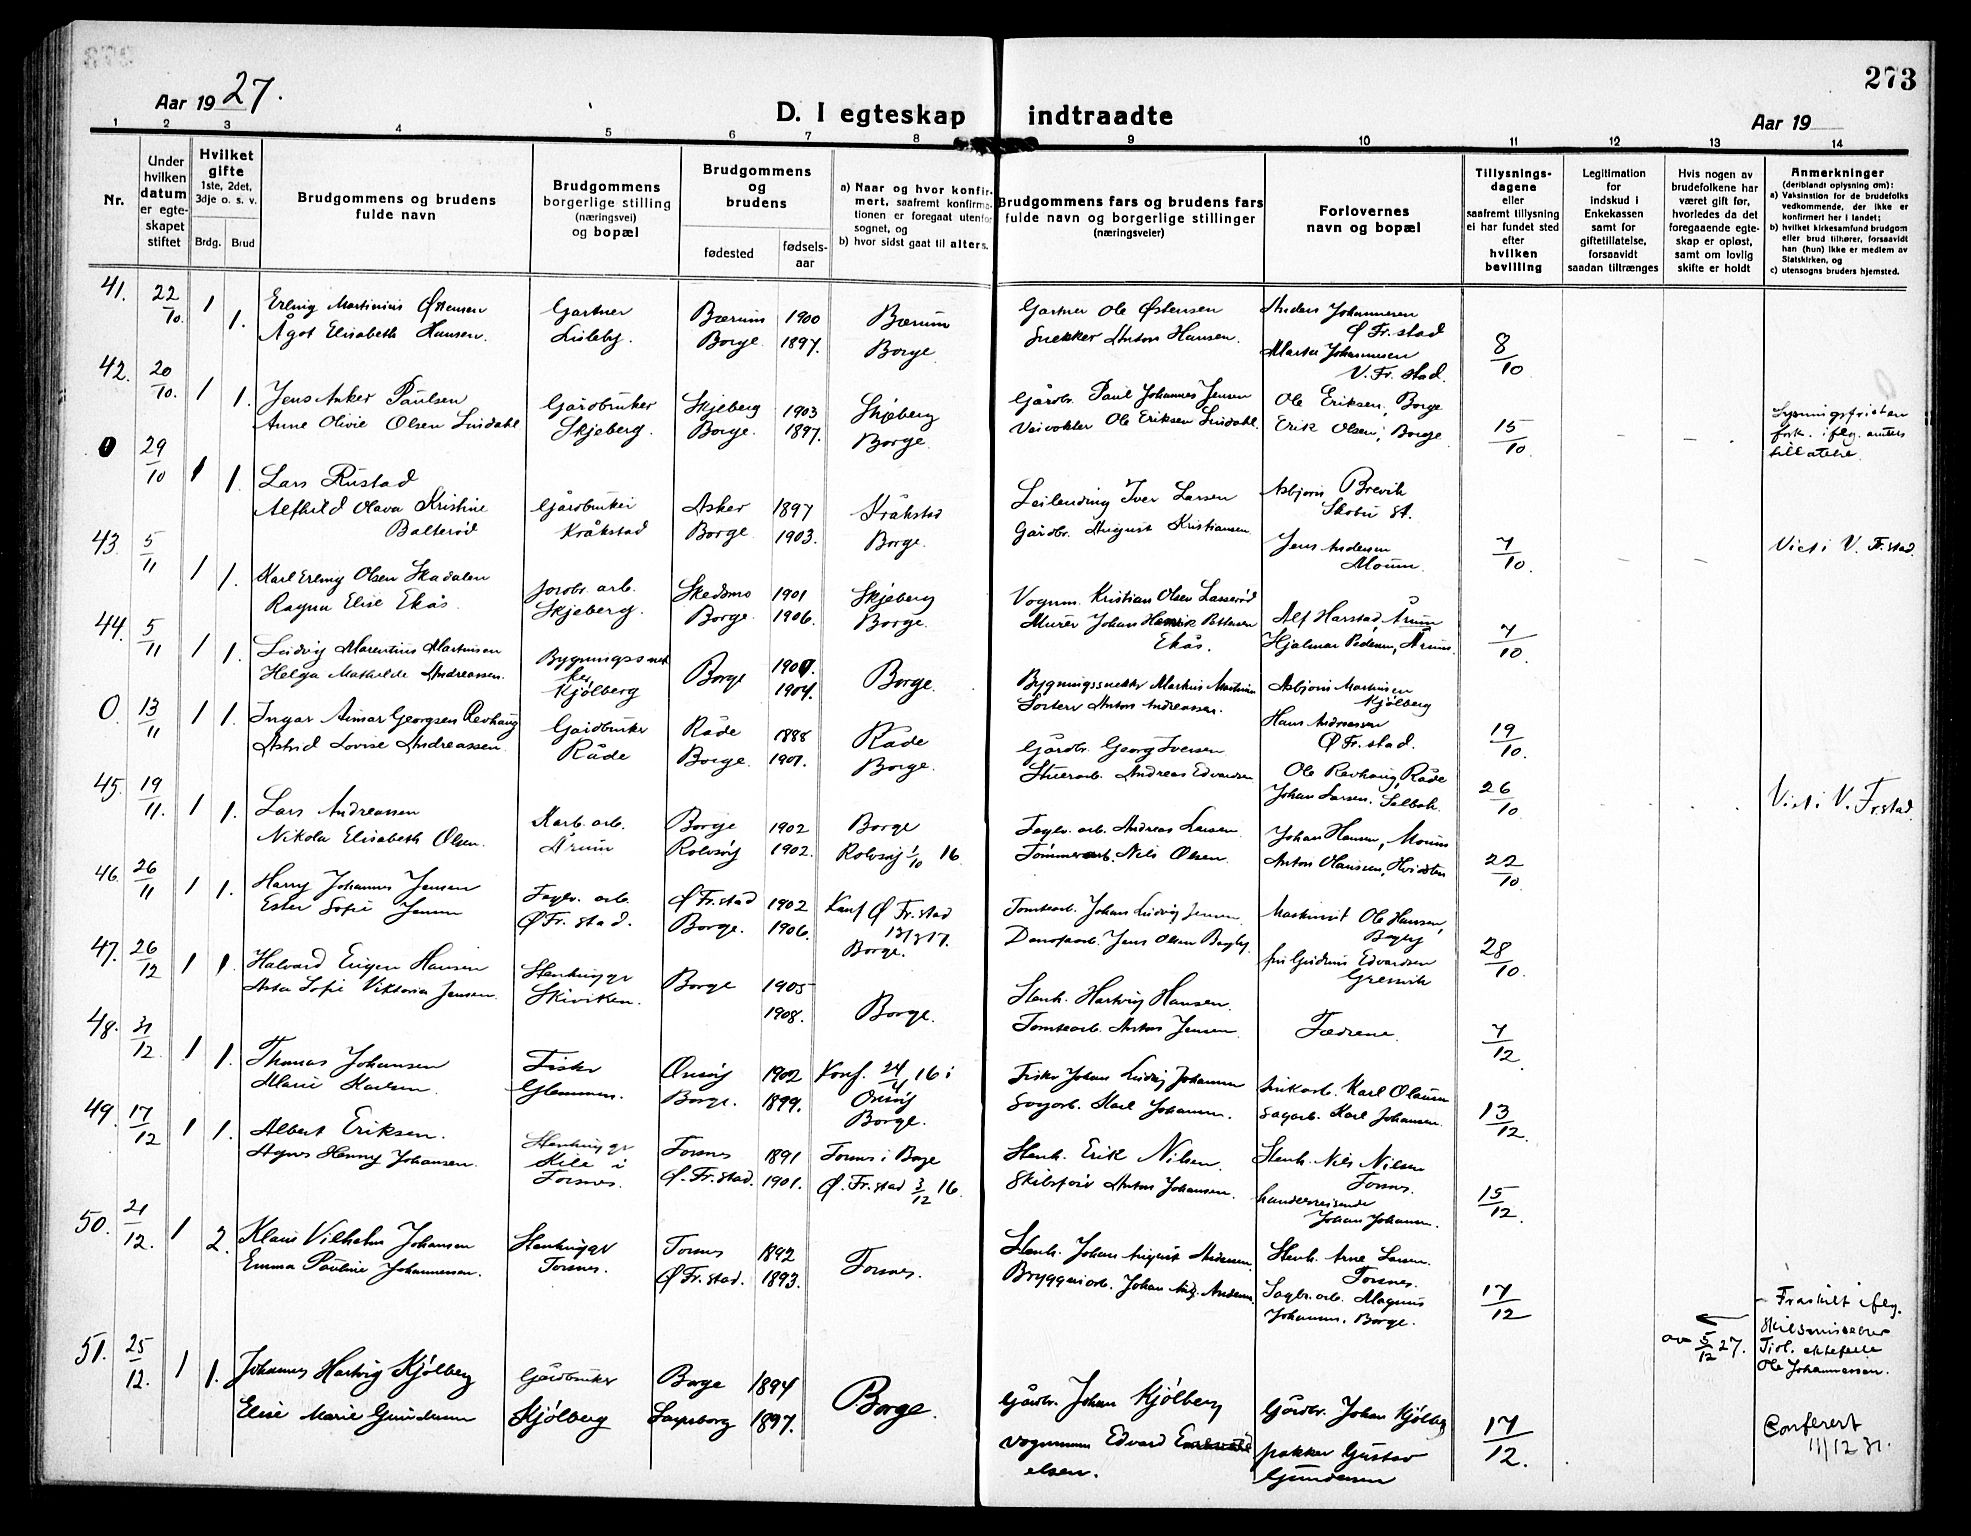 273
Aar 1927.
D. I egteskap indtraadte
Aar 19
1 2 3 4 5 6 7 8 9 10 11 12 13 14
Nr.
Under hvilken datum er egteskapet stiftet
Hvilket gifte 1ste, 2det, 3dje o. s. v.
Brdg. Brud
Brudgommens og brudens fulde navn
Brudgommens borgerlige stilling (næringsvei) og bopæl
Brudgommens og brudens
fødested
fødselsaar
a) Naar og hvor konfirmert, saafremt konfirmationen er foregaat utenfor sognet, og
b) hvor sidst gaat til alters.
Brudgommens fars og brudens fars fulde navn og borgerlige stillinger (næringsveier)
Forlovernes navn og bopæl
Tillysningsdagene eller saafremt tillysning ei har fundet sted efter hvilken bevilling
Legitimation for indskud i Enkekassen samt for giftetillatelse, forsaavidt saadan tiltrænges
Hvis nogen av brudefolkene har været gift før, hvorledes da det foregaaende egteskap er opløst, samt om lovlig skifte er holdt
Anmerkninger (deriblandt oplysning om):
a) Vaksination for de brudefolks vedkommende, der ikke er konfirmert her i landet;
b) hvilket kirkesamfund brudgom eller brud tilhører, forsaavidt han (hun) ikke er medlem av Statskirken, og
c) utensogns bruders hjemsted.
41. 22/10 1 1. Erling Martinius Østensen Gartner Bærum 1900 Bærum Gartner Ole Østensen Anders Johannesen Ø Fr. stad 8/10
Ågot Elisabeth Hansen. Lisleby. Borge 1897. Borge. Snekker Anton Hansen. Marta Johannesen V. Fr. stad.
42. 20/10. 1 1. Jens Anker Paulsen Gårdbruker Skjeberg 1903 Skjeberg Gårdbr. Paul Johannes Jensen Ole Eriksen, Borge 15/10 Lysningsfristen fork. iflg. amtets tillatelse.
Anne Olivie Olsen Lindahl Skjeberg. Borge. 1897. Borge. Veivokter Ole Eriksen Lindahl. Erik Olsen, Borge
0 29/10 1 1. Lars Rustad Gårdbruker Asker 1897 Kråkstad Leilending Iver Larsen Asbjørn Brevik Skotbu st. 7/10. Viet i V. Fr.stad.
Alfhild Olava Kristine Balterød Kråkstad Borge 1903. Borge. Gårdbr. August Kristiansen Jens Andersen Moum.
43. 5/11 1 1. Karl Erling Olsen Skadalen Jordbr. arb. Skedsmo 1901 Skjeberg Vognm. Kristian Olsen Lasserød Alf Harstad, Årum 7/10.
Ragna Elise Ekås. Skjeberg. Borge 1906. Borge. Murer Johan Henrik Pettersen Ekås. Hjalmar Pedersen, Årum.
44. 5/11 1 1. Ludvig Marentius Martinsen Bygningssnekker Borge Borge. Bygningssnekker Markus Martinsen Asbjørn Martinsen Kjølberg 19/10.
Helga Mathilde Andreassen. Kjølberg 1904. Sorterer Anton Andreassen. Hans Andreassen Ø Fr. stad.
0. 13/11 1 1. Ingar Aimar Georgsen Revhaug Gårdbruker Råde 1888 Råde Gårdbr. Georg Iversen Ole Revhaug, Råde 26/10 Viet i V. Fr.stad.
Astrid Lovise Andreassen. Råde Borge. 1901. Borge. Stuerarb. Andreas Edvardsen Johan Larsen, Selbak.
45. 19/11. 1 1. Lars Andreassen Karb. arb. Borge 1902 Borge Teglv. arb. Andreas Larsen Johan Hansen, Moum 22/10.
Nikola Elisabeth Olsen. Årum Rolvsøy 1902. Rolvsøy 1/10 16. Tømmerarb. Nils Olsen. Anton Olaussen, Hvidsten
46. 26/11 1 1. Harry Johannes Jensen Teglv. arb. Ø Fr. stad 1902 Konf Ø Fr. stad Tomtearb. Johan Ludvig Jensen. Maskinist Ole Hansen, Begby 28/10.
Ester Sofie Jensen Ø Fr. stad. Borge. 1906. Borge. Jens Olsen Begby. frk Gudrun Edvardsen Gressvik
47. 26/12 1 1. Halvard Eugen Hansen Stenhugger Borge 1905 Borge. Stenh. Hartvig Hansen. Fædrene. 7/12
Asta Sofie Viktoria Jensen. Skiviken. 1908. Tomtearb. Anton Jensen.
48. 31/12 1 1. Thomas Johansen Fisker Onsøy 1902 Konf. 24/4 16 i Onsøy Fisker Johan Ludvig Johansen Karl Olausen 13/12.
Marie Karlsen Glemmen. Borge. 1899. Borge. Sagarb. Karl Johansen. Sagarb. Karl Johansen.
49. 17/12 1 1. Albert Eriksen. Stenhugger Torsnes 1891 Torsnes i Borge Stenh. Erik Nilsen. Stenh. Nils Nilsen Torsnes. 15/12.
Agnes Henny Johansen. Kile i Torsnes. Ø. Fr. stad. 1901. Ø. Fr. stad 3/12 16. Skibsfører Anton Johansen. handelsreisende Johan Johansen.
50. 21/12. 1 2. Klaus Vilhelm Johansen Stenhugger Torsnes 1892 Torsnes. Stenh. Johan August Andersen. Stenh. Arne Larsen Torsnes. 17/12 av 5/12 27. Fraskilt iflg. skilsmissebrev Tidl. ektefelle Ole Johannessen.
Emma Pauline Johannessen. Torsnes. Ø Fr. stad. 1893. Bryggeriarb. Johan Andersen. Sagbr. arb. Magnus Johansen. Borge.
51. 25/12. 1 1. Johannes Hartvig Kjølberg Gårdbruker Borge 1894 Borge. Gårdbr. Johan Kjølberg Gårdbr. Johan Kjølberg 17/12. Conferert 11/12 31.
Elise Marie Gundersen Kjølberg Sarpsborg 1897. Vognmann Edvard elsen. pakker Gustav Gundersen